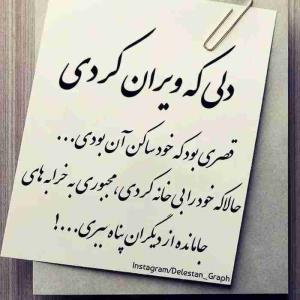 دلی که ویران کردی
قصری بود که خود ساکن آن بودی...
حالا که خود را بی خانه کردی، مجبوری به خرابه های
جامانده از دیگران پناه ببری...!
Instagram/Delestan_Graph